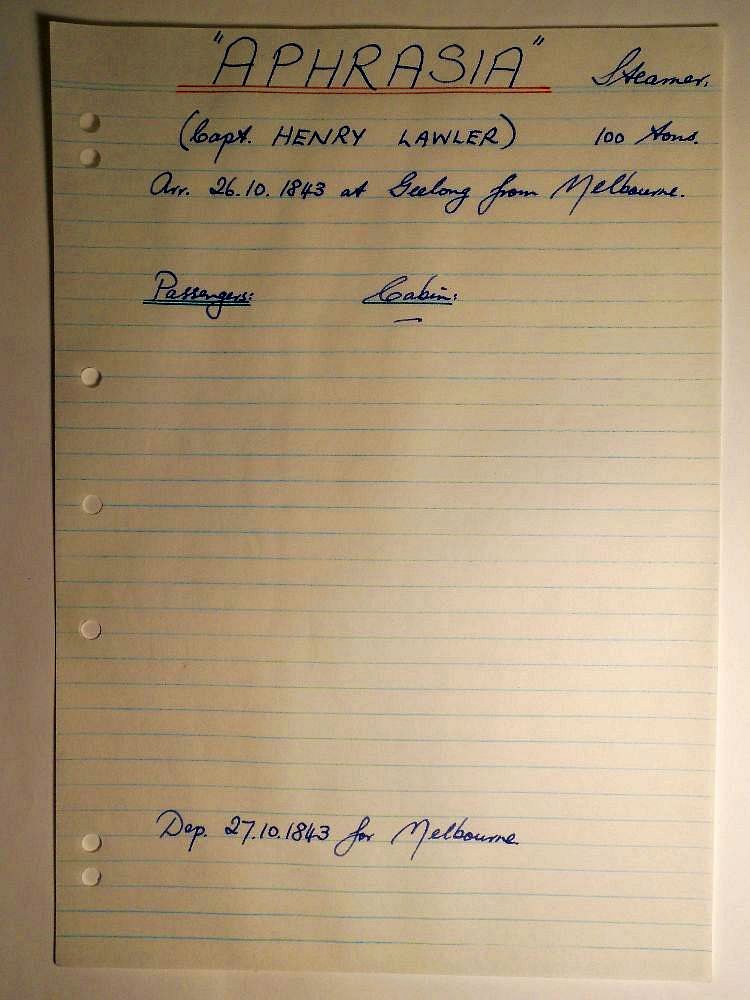 "APHRASIA" Steamer.
(Capt. HENRY LAWLER) 100 tons.
Arr. 26.10.1843 at Geelong from Melbourne.
Passengers: Cabin:
—
Dep. 27.10.1843 for Melbourne.